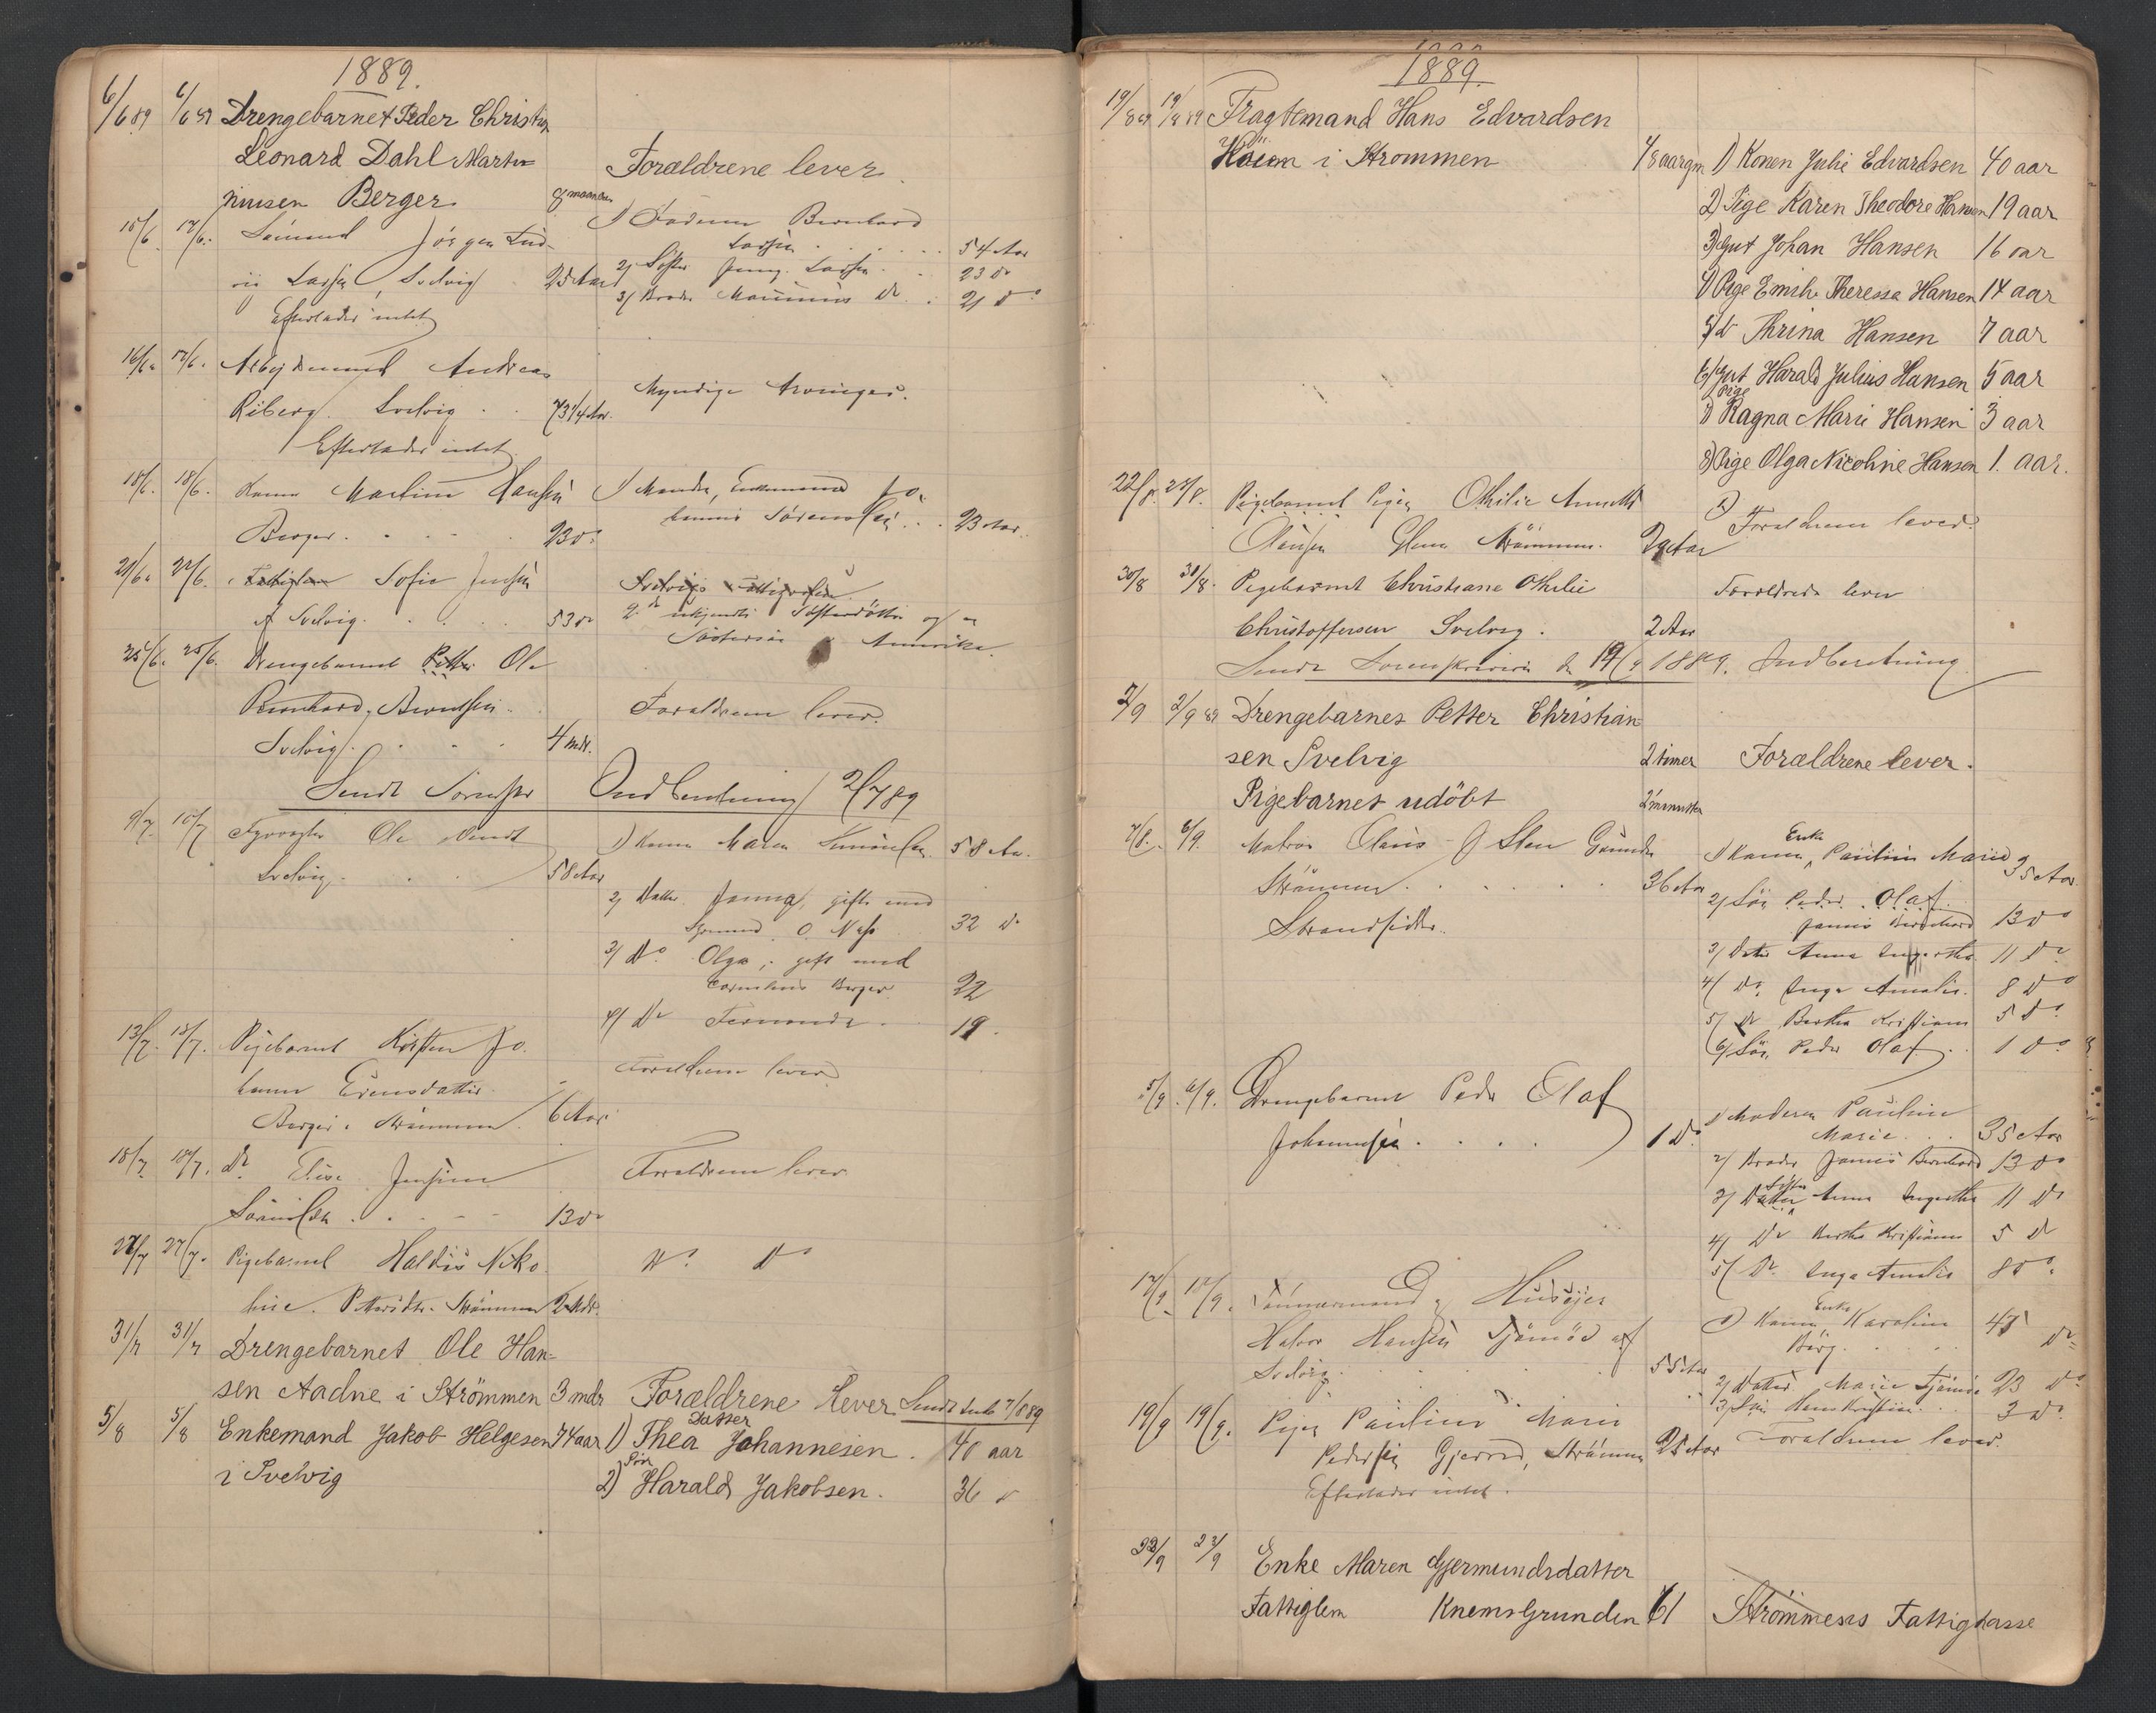 1889.
6/6 89 6/6 89 Drengebarnet Peder Christian
Leonard Dahl Martin
jinusen Berger 9 maaneder
Forældrene lever
15/6. 17/6. Sømand Jørgen Lud-
vig Larsen, Svelvig 25 Aar
Efterlader intet
1) Faderen Bernhard
Larsen . . . . . . 54 Aar
2) Søster Jenny Larsen . . 23 Do
3) Broder Marinius Do . 21 Do
16/6. 17/6. Arbejdsmand Andreas
Riberg. Svelvig . . 73 1/4 Aar.
Efterlader intet
Myndige Arvinger.
18/6. 18/6. Kone Martine Hansen
Berger. . . . . 23 Do
1) Manden, Jo-
hannes Sørensen . . 23 Aar.
21/6. 22/6. Fattiglem Sofie Jensen
af Svelvig. . . . 53 Do
Svelvigs Fattigkasse
2de ukjendte Søsterdøttre og en
Søstersøn i Amerika.
25/6. 25/6. Drengebarnet Petter Ole
Bernhard Berntsen
Svelvig. . . . 4 Mdr.
Forældrene lever.
Sendt Sorenskr Indberetning 2/7 89
9/7. 10/7 Fyrvogter Ole
Svelvig. . . 58 Aar
1) Kone Maren Simonsen 58 Aar.
2) Datter Janna, gift med
Styrmand O. Næss 32 Do
3) Do Olga, gift med
Cornelius Berger 22
4) Do Fernanda . 19.
13/7. 13/7. Pigebarnet Kirsten Jo-
hanne Evensdatter
Berger i Strømmen. 6 Aar
Forældrene lever
18/7. 18/7. Do Elise Jensine
Sørensen . . . . 13 Do
Forældrene lever
27/7 27/7. Pigebarnet Haldis Niko-
line Strømmen 2 Mdr.
Do Do
31/7 31/7 Drengebarnet Ole Han-
sen Aadne i Strömmen 3 mdr Forældrene Lever Sendt Indb 7/8 89
5/8 5/8 Enkemand Jakob Helgesen 74 aar
i Svelvig
1) Datter Thea Johannesen . 40 aar
2) Søn Harald Jakobsen. 36 "
1889.
19/8 89 19/8 89 Fragtemand Hans Edvardsen
Höien i Strommen 48 aar gm
1) Konen Julie Edvardsen 40 aar
2) Pige Karen Theodore Hansen 19 aar
3) Gut Johan Hansen 16 aar
4) Pige Emilie Theressa Hansen 14 aar
5) do Thrina Hansen 7 aar
6) Gut Harald Julius Hansen 5 aar
7) Pige Ragna Marie Hansen 3 aar
8) Pige Olga Nicoline Hansen 1. aar.
22/8. 23/8. Pigebarnet Pigen Othilie Annette
Olausen Strömmen. 29 Aar
Forældrene lever.
30/8 30/8. Pigebarnet Christiane Othilie
Christoffersen Svelvig. 2 Aar
Forældrene lever
Sendt Sorenskriveren den 19/9 1889. Indberetning
2/9 2/9 89 Drengebarnet Petter Christian
sen Svelvig 2 timer Forældrene lever.
Pigebarnet udöbt 2 minutter
6/9. Matros Olaus
Strömmen . . . . . 36 Aar
Strandsidder.
1) Konen Enke Pauline Marie 35 Aar.
2) Sön Peder Olaf
Jannis Bernhard 13 Do
3) Datter Anna Ingertha 11 Do
4) Do. Inga Amalie. 8 Do
5) Do Bertha Kristiane 5 Do
6) Søn Peder Olaf . . 1 Do
5/9. 6/9. Drengebarnet Peder Olaf
Johannesen. . . . 1 Do.
1) Moderen Pauline
Marie . . 35 Aar
2) Broder Jannis Bernhard 13 Do
3) Datter Søster Anna Ingertha 11 Do
4) Do Bertha Kristiane 5 Do
5) Do. Inga Amalie 8 Do.
17/9. 17/9. Tømmermand og Huseier
Halvor Hansen Tjömöe af
Svelvig . . . . . 55 Aar
1) Konen Enke Karoline 45 Do
Berg. . . . .
2) Datter Marie Tjömöe 23 Do
3) Søn Hans Kristian . . 3 Do
19/9 19/9. Pigen Pauline Marie
Pedersen Gjerred, Strömmen 25 Aar
Efterlader intet.
Forældrene lever.
22/9 23/9 Enke Maren Gjermundsdatter
Fattiglem Knemsgrunden 61 Strömmens Fattigkasse